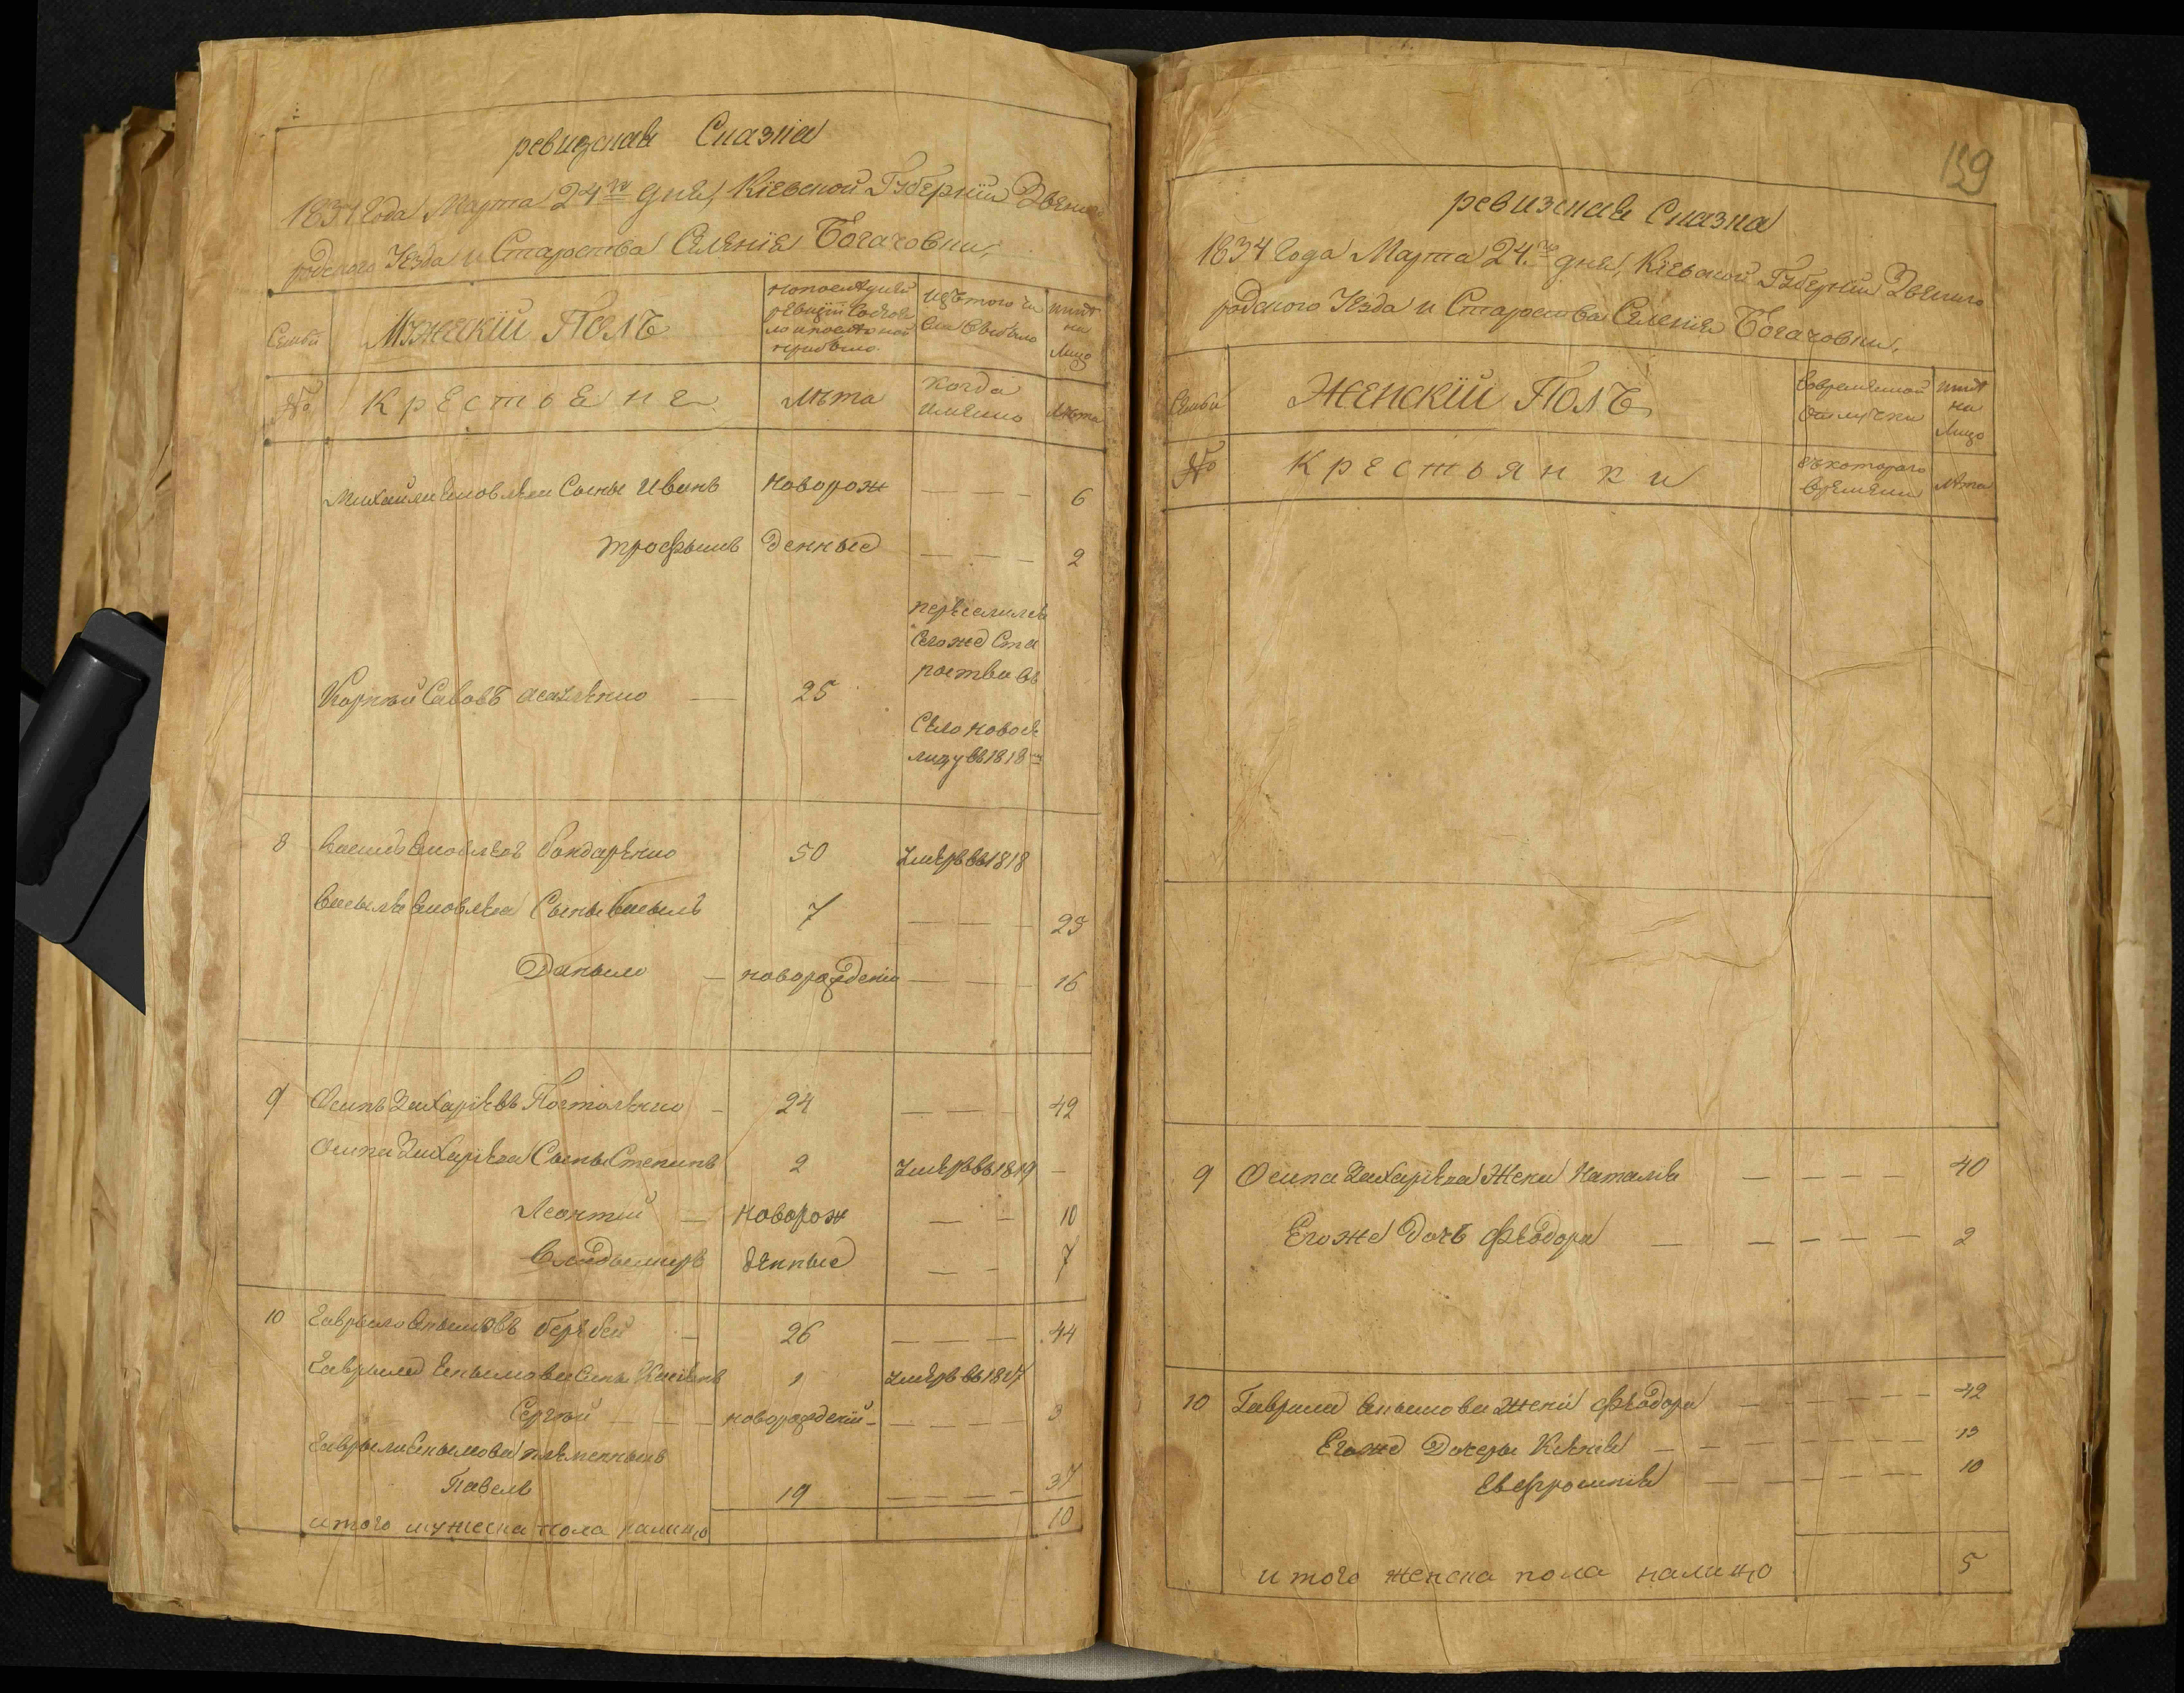 ревизская Сказка
1834 года Марта 24го дня, Кіевской Губерніи Звениго
родского Уезда и Староства Селенія Богачовки,
Семьи
Мужескій Полъ
по последней
ревизіи состоя
ло и после оной
прибыло
изъ того чи
сла выбыло
ныне
на
лицо
№
Крестьяне
лета
когда
имянно
лета
Михайли Яковлева Сыны Иванъ новорож — — — 6
трофымъ денные — — — 2
переселился
Сегоже Ста
роства въ
Корней Савовъ — 25
Село Новосе
лицу въ 1818м
8 Василь Яковлевъ бондаренко 50 умеръ въ 1818
Василя Яковлева Сыны Василь 7 — — — 25
Даныло — новорожденъ — — — 16
9 Осипъ Захаріевъ Постоленко — 24 — — — 42
Осипа Захаріева Сыны Степанъ 2 умеръ въ 1819 —
Леонтий — новорож — — 10
Владымиръ денные — — 7
10 Гаврыло Якымовъ 26 — — — 44
Гаврыла Якымова Сынъ 1 умеръ въ 1817
Сергей — — — новорожденій — — — — 3
Гаврыла Якымова племенныкъ
Павелъ 19 — — — — 37
итого мужеска пола налицо 10
159
ревизская Сказка
1834 года Марта 24.го дня, Кіевской Губерніи Звениго
родского Уезда и Староства Селенія Богачовки,
Семьи
Женскій Полъ
Вовременной
отлучки
ныне
на
Лицо
№
Крестьянки
съ котораго
времени
лета
9 Осипа Захаріева Жена Наталія — — — — 40
Егоже Дочь Феодора — — — — — — 2
10 Гаврила Якымова Жена Феодора — — — — 42
Егоже Дочеры Ксенія — — — — — — 13
Евфросинія — — — — — — 10
итого женска пола налицо 5